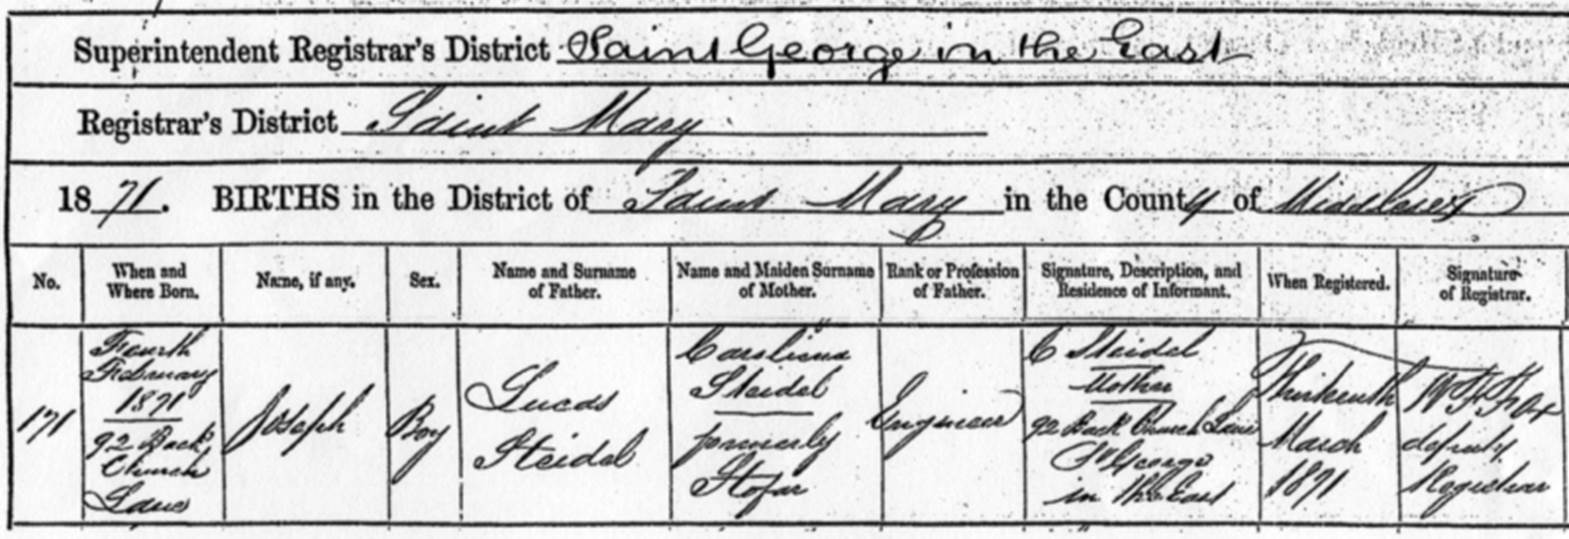 Superintendent Registrar's District Saint George in the East
Registrar's District Saint Mary
1871. BIRTHS in the District of Saint Mary in the County of Middlesex
No.
When and
Where Born.
Name, if any.
Sex.
Name and Surname
of Father.
Name and Maiden Surname
of Mother.
Rank or Profession
of Father.
Signature, Description, and
Residence of Informant.
When Registered.
Signature
of Registrar.
171
Fourth
February
1871
92 Back
Church
Lane
Joseph
Boy
Lucas
Steidel
Carolina
Steidel
formerly
Hofar
Engineer
C Steidel
Mother
92 Back Church Lane
St George
in the East
Thirteenth
March
1871
Fox
deputy
Registrar